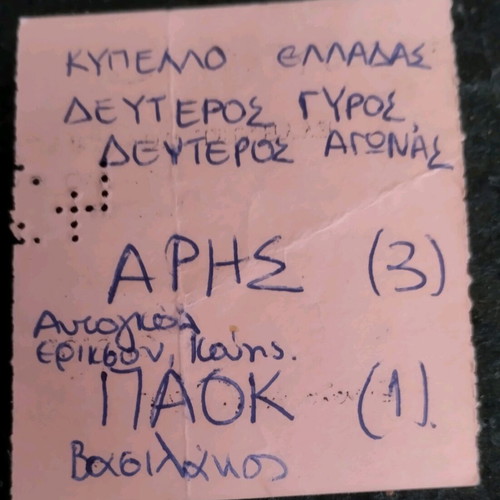 ΚΥΠΕΛΛΟ ΕΛΛΑΔΑΣ
ΔΕΥΤΕΡΟΣ ΓΥΡΟΣ
ΔΕΥΤΕΡΟΣ ΑΓΩΝΑΣ
ΑΡΗΣ (3)
Αυτογκολ
Ερικσον, Κούης.
ΠΑΟΚ (1).
Βασιλάκος